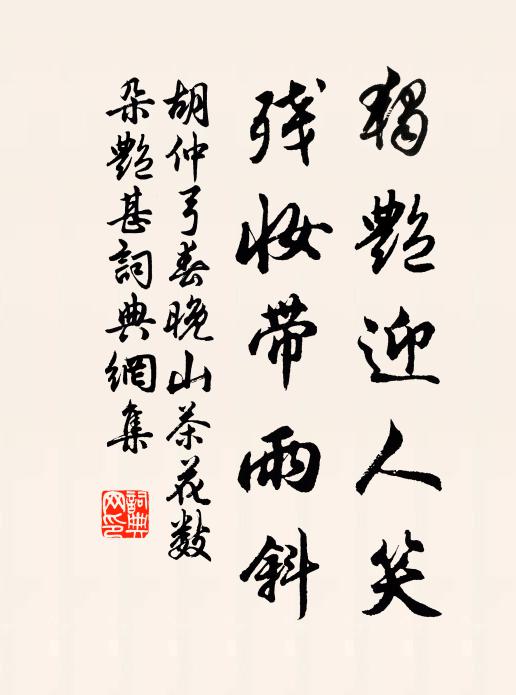 獨艷迎人笑
残妝帶雨斜
胡仲弓春晚山茶花數
朵艷甚詞典網集
詞典網印